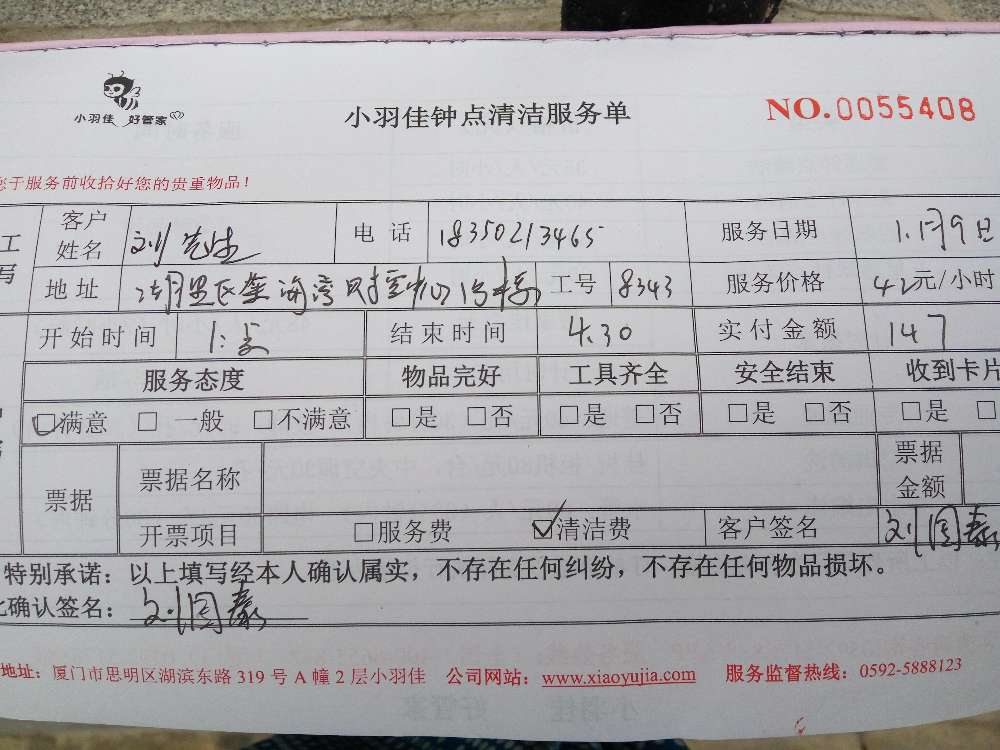 小羽佳 好管家
小羽佳钟点清洁服务单
NO.0055408
您于服务前收拾好您的贵重物品!
工 客户姓名 刘先生 电话 18350213465 服务日期 1.月9日
写 地址 湖里区 海湾 工号 8343 服务价格 42元/小时
开始时间 1:点 结束时间 4.30 实付金额 147
服务态度 物品完好 工具齐全 安全结束 收到卡片
☑满意 □一般 □不满意 □是 □否 □是 □否 □是 □否 □是 □
票据 票据名称 票据金额
开票项目 □服务费 ☑清洁费 客户签名 刘国泰
特别承诺:以上填写经本人确认属实,不存在任何纠纷,不存在任何物品损坏。
此确认签名: 刘国泰
地址:厦门市思明区湖滨东路 319 号 A 幢 2 层小羽佳 公司网站:www.xiaoyujia.com 服务监督热线:0592-5888123